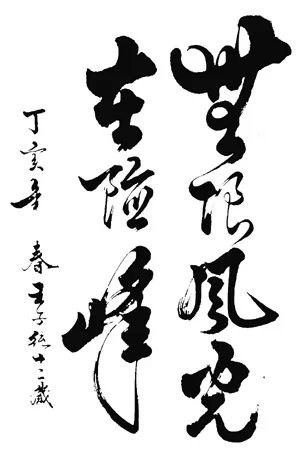 無限風光
在險峰
丁亥年 春 王子 十二歲